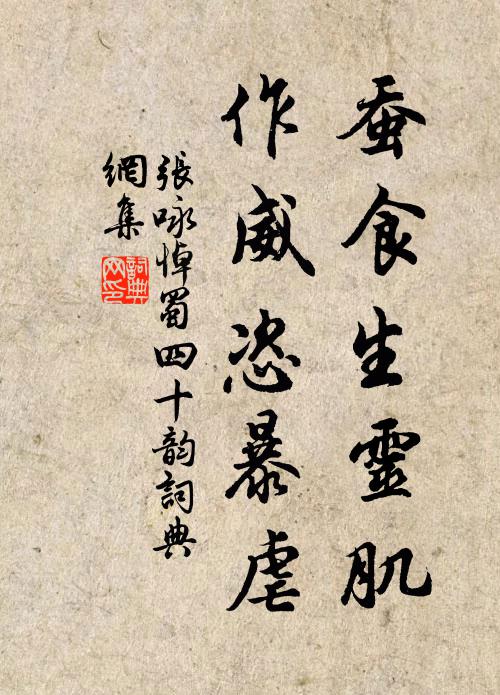 蚕食生靈肌
作威恣暴虐
張咏悼蜀四十韵詞典
網集
詞典網印